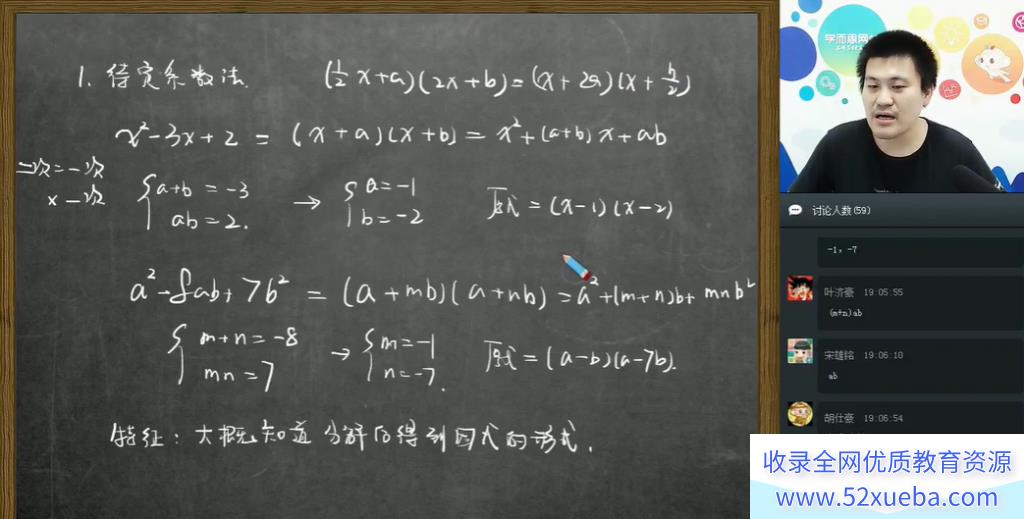 1. 待定系数法. (½x+a)(2x+b)=(x+2a)(x+b/2)
x²-3x+2 = (x+a)(x+b) = x²+(a+b)x+ab
二次=一次
×一次
{a+b=-3
ab=2.
→ {a=-1
b=-2
原式=(x-1)(x-2)
a²-8ab+7b² = (a+mb)(a+nb)=a²+(m+n)b+mnb²
{m+n=-8
mn=7
→ {m=-1
n=-7.
原式=(a-b)(a-7b).
特征：大概知道分解后得到因式的形式.
学而思网
讨论人数(59)
-1，-7
叶济豪 19:05:55
(m+n)ab
宋雄铭 19:06:10
ab
胡仕豪 19:06:54
收录全网优质教育资源
www.52xueba.com